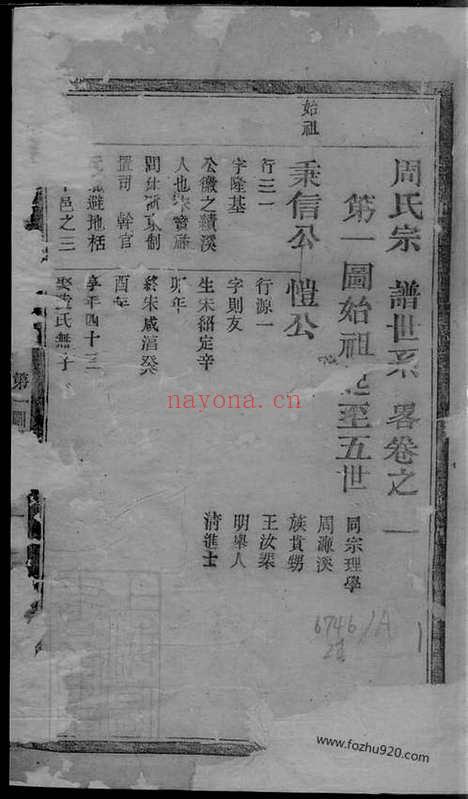 周氏宗譜世系畧卷之一
第一圖始祖起至五世
同宗理學
周濂溪
族貢甥
王汝
明舉人
清進士
始祖
秉信公
行三一
字隆基
公徽之績溪
人也宋寶祐
間仕浙東制
置司幹官
避地栝
邑之三
愷公
行源一
字則友
生宋紹定辛
卯年
終宋咸淳癸
酉年
享年四十三
娶氏無子
第一圖
6746/A
1
nayona.cn
www.fozhu920.com